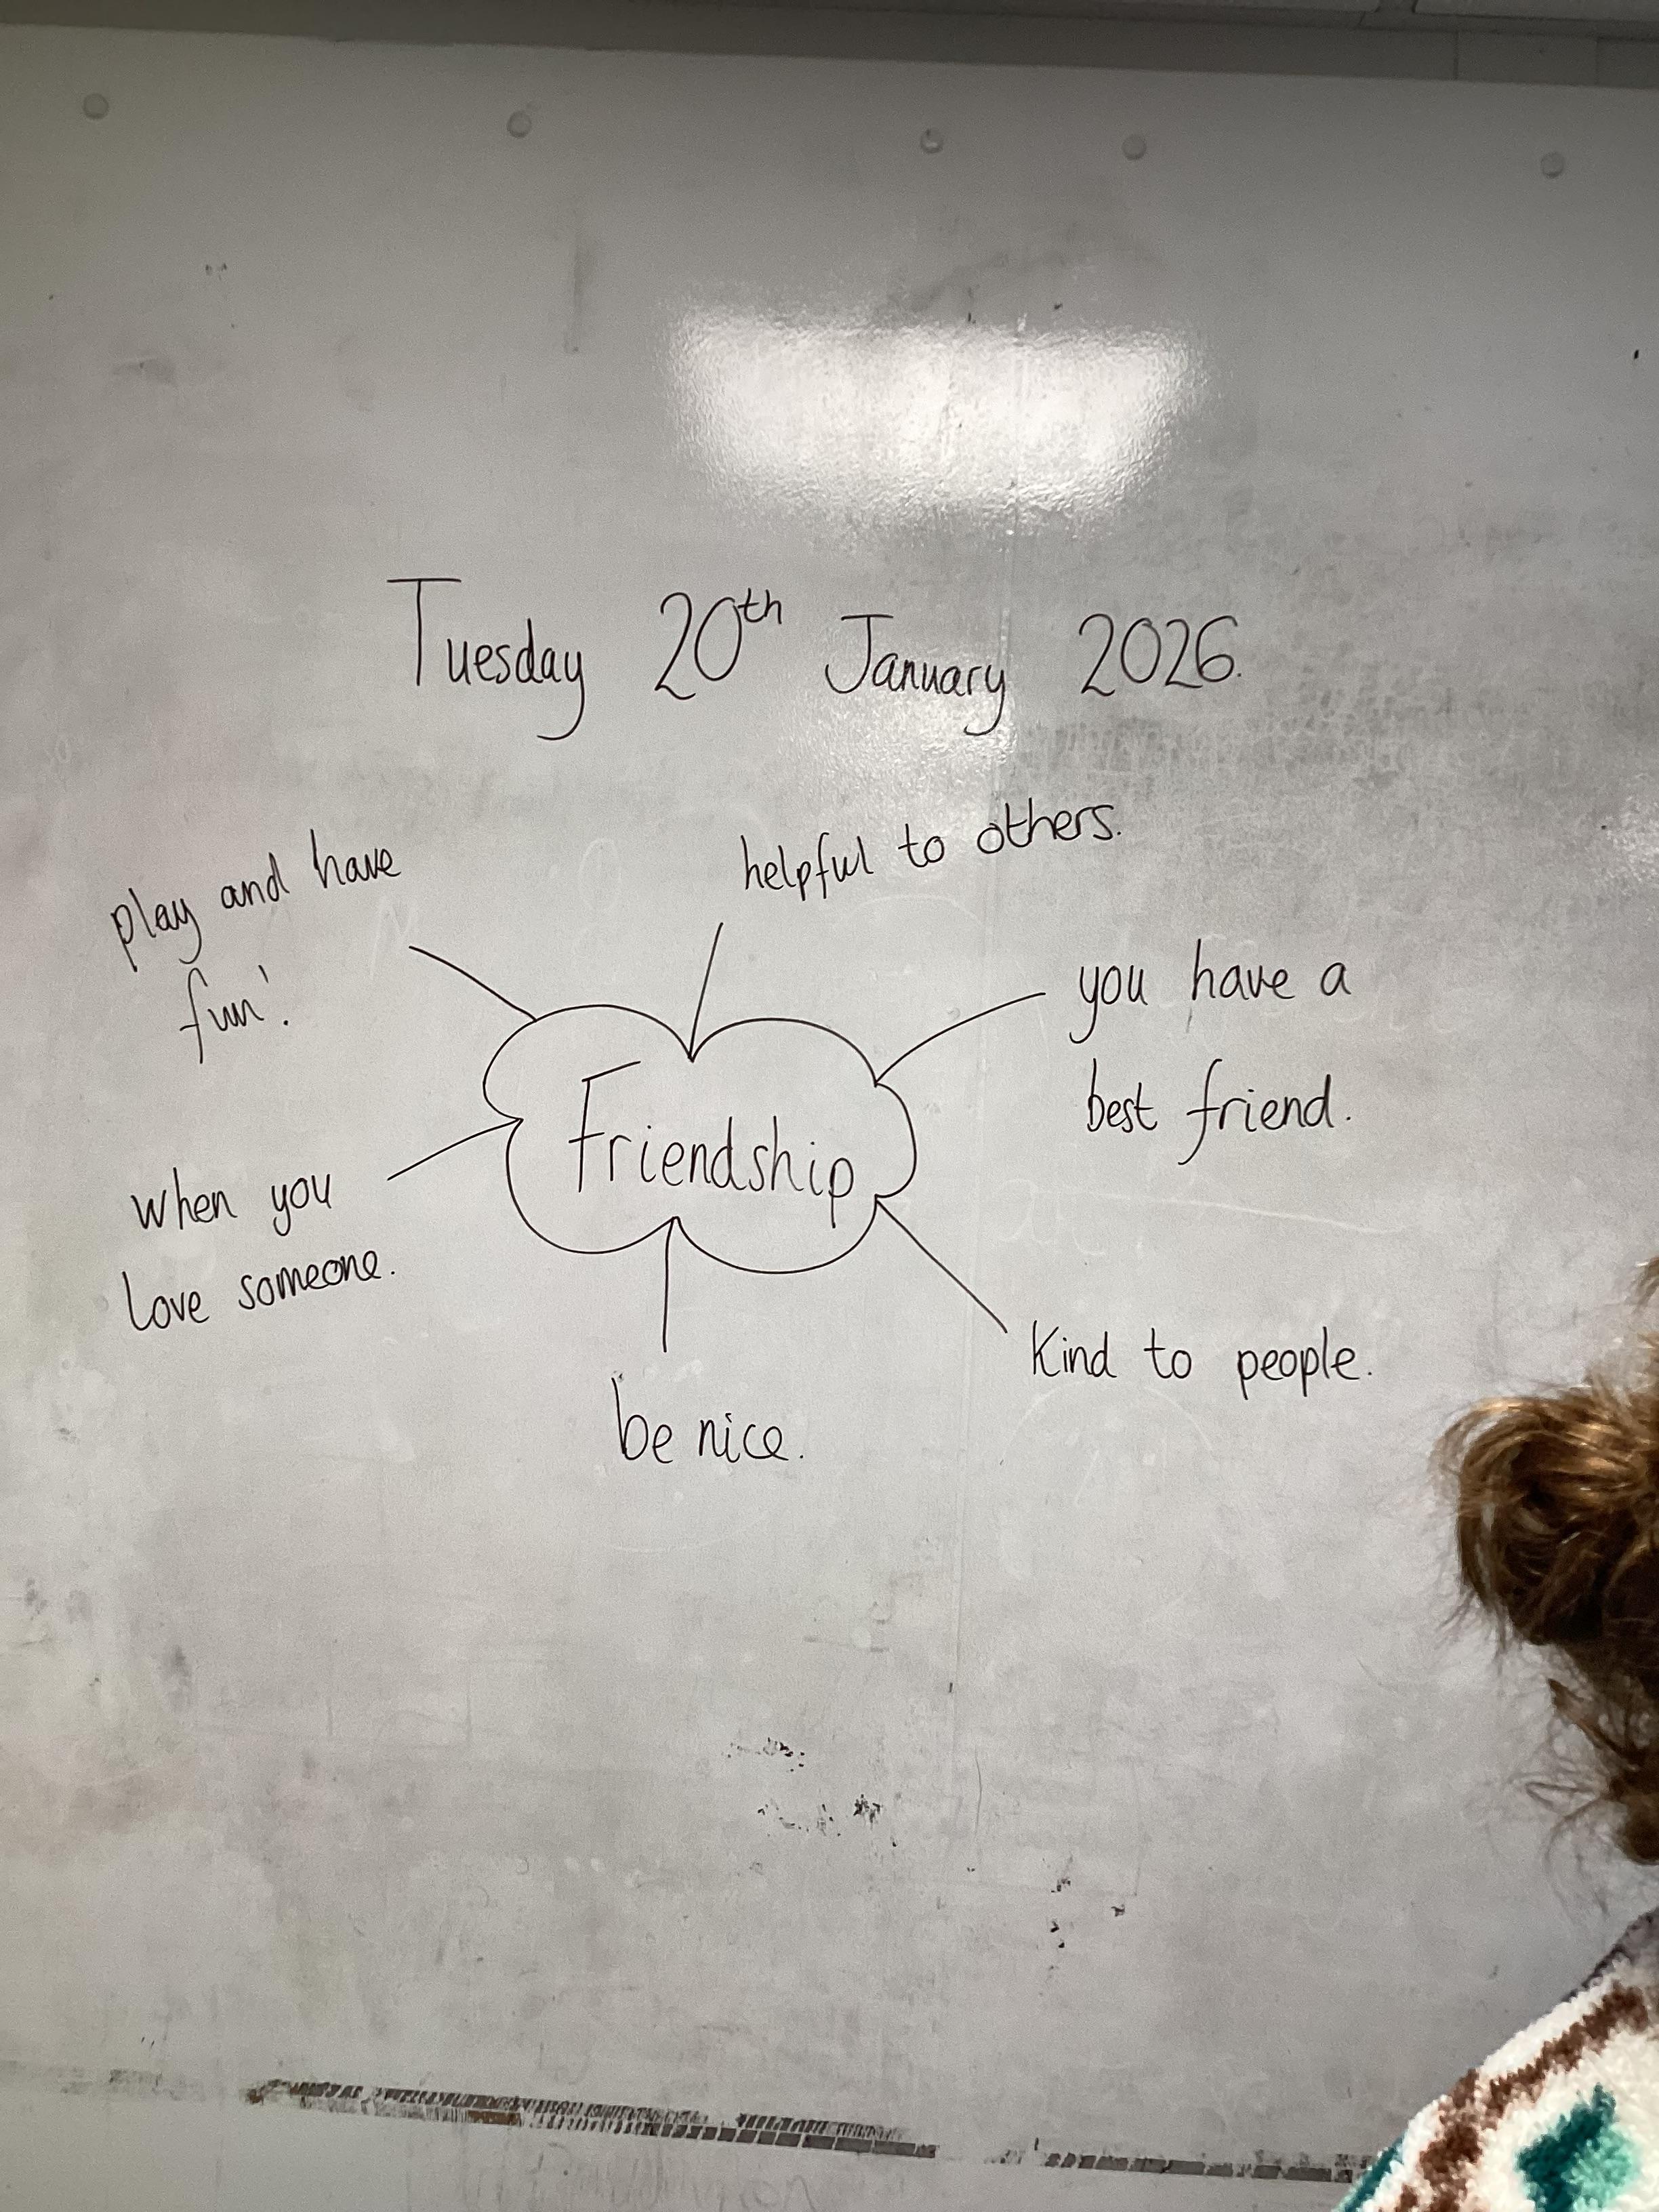 Tuesday 20th January 2026.
play and have
fun!
helpful to others.
you have a
best friend.
Friendship
when you
love someone.
be nice.
Kind to people.